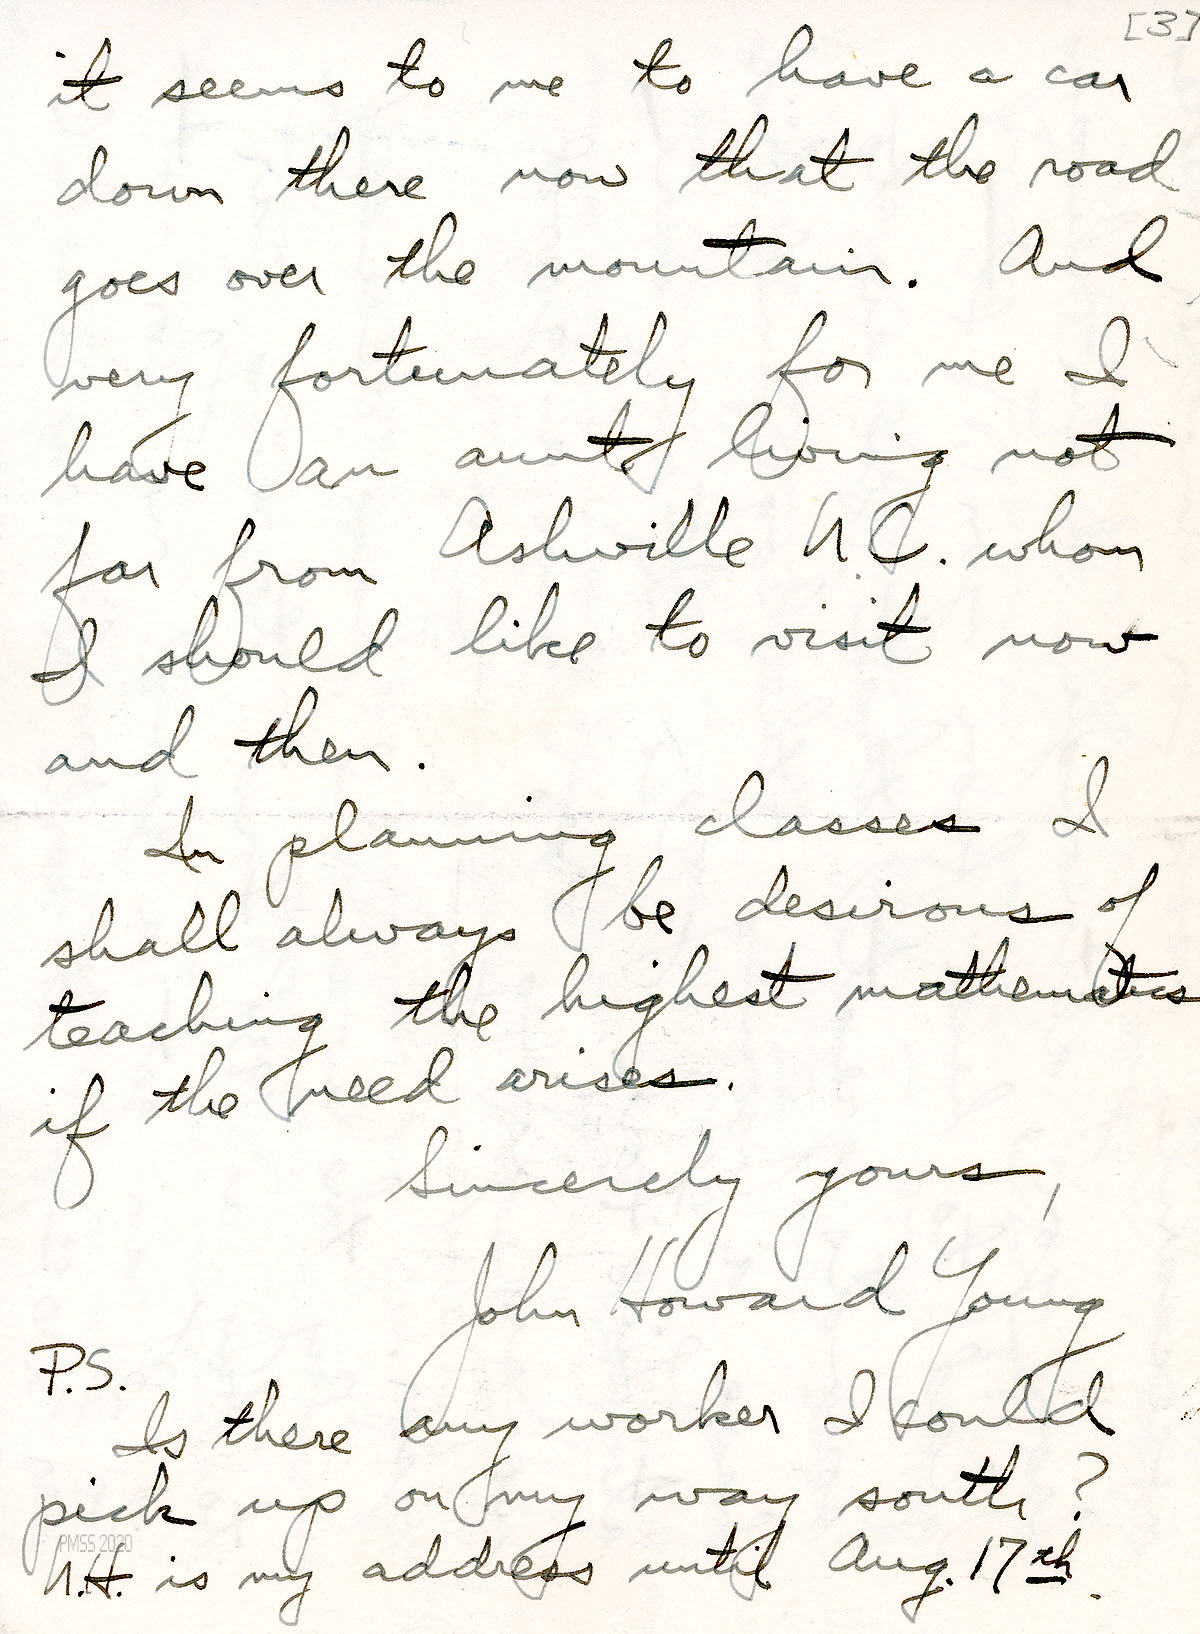 [3]
it seems to me to have a car
down there now that the road
goes over the mountain. And
very fortunately for me I
have an aunt living not
far from Ashville N.C. whom
I should like to visit now
and then.
In planning classes I
shall always be desirous of
teaching the highest mathematics
if the need arises.
Sincerely yours,
John Howard Young
P.S.
Is there any worker I could
pick up on my way south?
PMSS 2020
N.H. is my address until Aug. 17th.